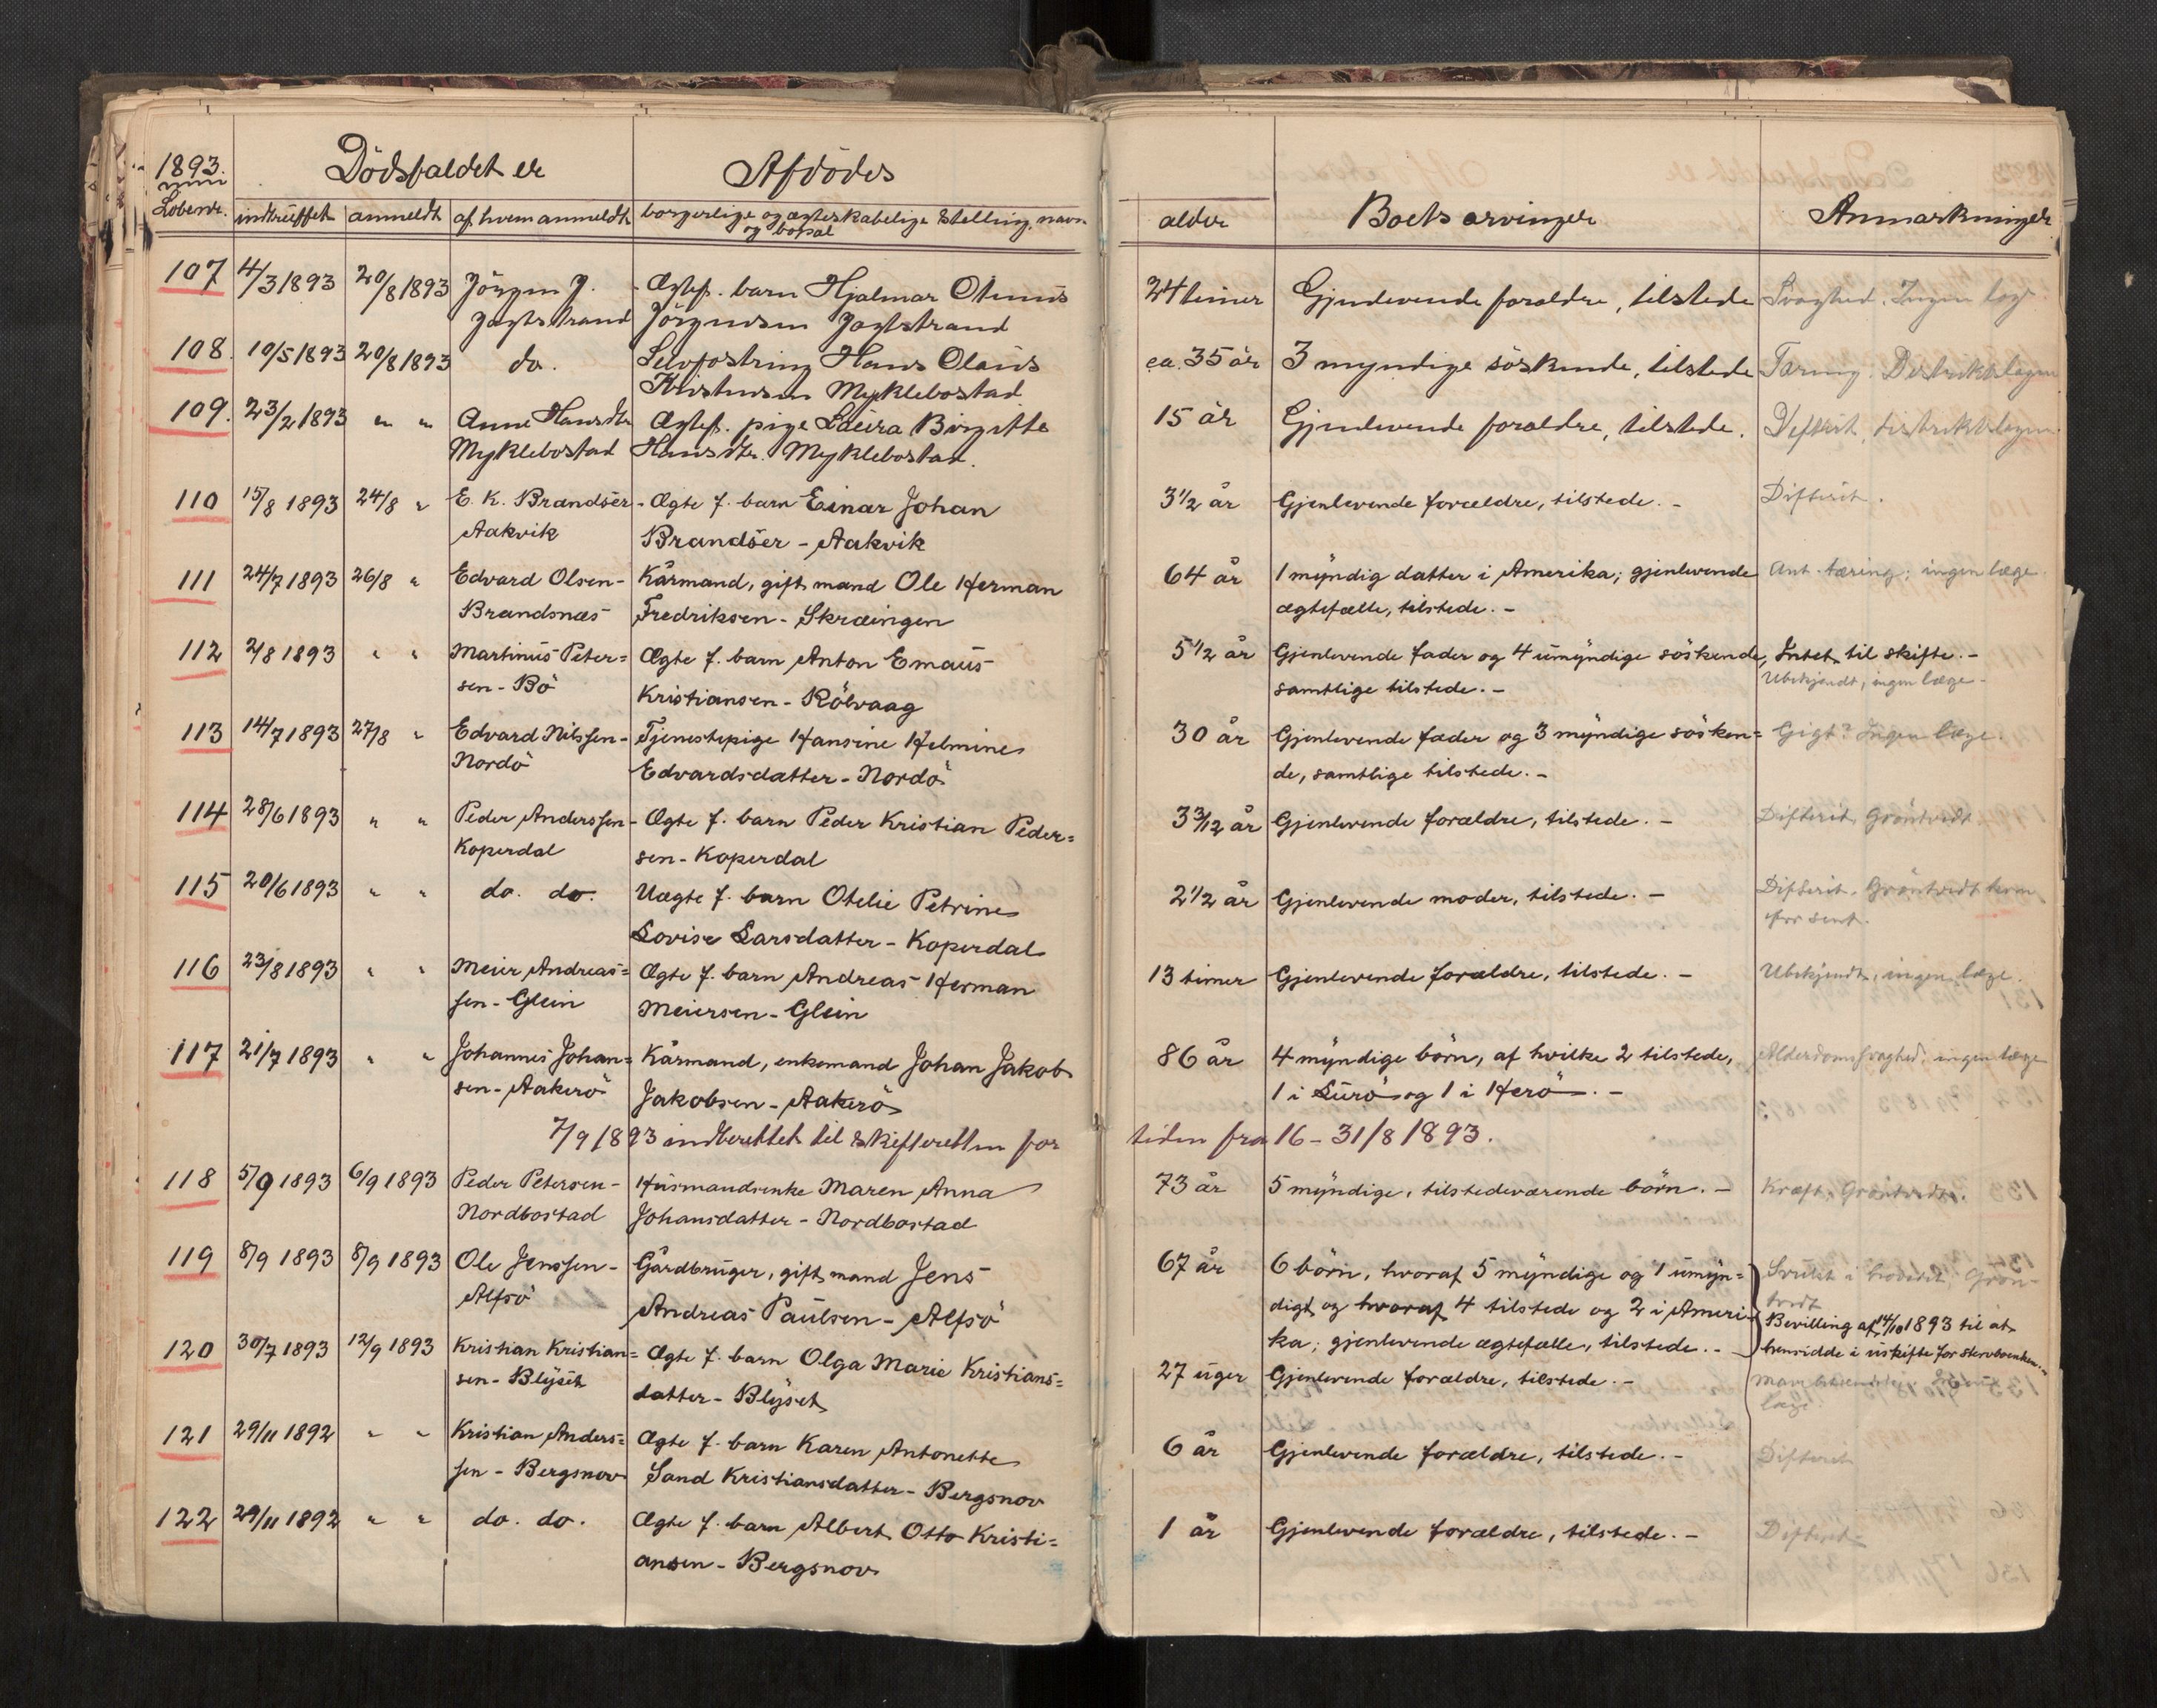 1893.
Löbenr.
Dödsfaldet er
indtruffet
anmeldt
af hvem anmeldt
Afdödes
borgerlige og ægteskabelige stilling, navn
og bopæl
alder
Boets arvinger
Anmærkninger
107 4/3 1893 20/8 1893 Jörgen J. Ægtef. barn Hjalmar Otinus 24 timer Gjenlevende forældre, tilstede Svaghed. Ingen læge
Jagtstrand Jörgensen Jagtstrand
108. 10/5 1893 20/8 1893 do. Hans Olaus ca. 35 år 3 myndige söskende, tilstede Tæring. Distriktslægen
Kristensen Myklebostad
109. 23/2 1893 " " Anne Hansdtr Ægtef. pige Laura Birgitte 15 år Gjenlevende forældre, tilstede. Difterit, distriktslægen.
Myklebostad Hansdtr. Myklebostad.
110 15/8 1893 24/8 " E. K. Brandser - Ægte f. barn Einar Johan 3 1/2 år Gjenlevende forældre, tilstede. - Difterit.
Aakvik Brandser - Aakvik
111 24/7 1893 26/8 " Edvard Olsen - Kårmand, gift mand Ole Herman 64 år 1 myndig datter i Amerika; gjenlevende Ant. tæring; ingen læge.
Brandsnæs Fredriksen - Skræingen ægtefælle, tilstede. -
112 2/8 1893 " " Martinus Peter= Ægte f. barn Anton Emaus 5 1/2 år Gjenlevende fader og 4 umyndige söskende, Intet til skifte. -
sen - Bö Kristiansen - Rölvaag samtlige tilstede. - Ubekjendt, ingen læge -
113 14/7 1893 27/8 " Edvard Nilssen - Tjenestepige Hansine Helmine 30 år Gjenlevende fader og 3 myndige sösken= Gigt? Ingen læge.
Nordö Edvardsdatter - Nordö de, samtlige tilstede. -
114 28/6 1893 " " Peder Anderssen - Ægte f. barn Peder Kristian Peder= 3 3/12 år Gjenlevende forældre, tilstede. - Difterit, Gröntvedt
Koperdal sen - Koperdal
115 20/6 1893 " " do. do. Uægte f. barn Otelie Petrine 2 1/2 år Gjenlevende moder, tilstede. - Difterit. Gröntvedt kom
Lovise Larsdatter - Koperdal for sent.
116 23/8 1893 " " Meier Andreas= Ægte f. barn Andreas Herman 13 timer Gjenlevende forældre, tilstede. - Ubekjendt, ingen læge.
sen - Glein Meiersen - Glein
117 21/7 1893 " " Johannes Johan= Kårmand, enkemand Johan Jakob 86 år 4 myndige börn, af hvilke 2 tilstede, Alderdomssvaghed, ingen læge
sen - Aakerö Jakobsen - Aakerö 1 i Lurö og 1 i Herö. -
7/9 1893 indberettet til skifteretten for tiden fra 16 - 31/8 1893.
118 5/9 1893 6/9 1893 Peder Petersen - Husmandsenke Maren Anna 73 år 5 myndige, tilstedeværende börn. - Kræft, Gröntvedt.
Nordbostad Johansdatter - Nordbostad
119 8/9 1893 8/9 1893 Ole Jenssen - Gårdbruger, gift mand Jens 67 år 6 börn, hvoraf 5 myndige og 1 umyn= i Grön-
Alfsö Andreas Paulsen - Alfsö digt og hvoraf 4 tilstede og 2 i Ameri- tvedt
Bevilling af 14/10 1893 til at
ka; gjenlevende ægtefælle, tilstede. - hensidde i uskifte for sterboenken. -
120 30/7 1893 12/9 1893 Kristian Kristian= Ægte f. barn Olga Marie Kristians= 27 uger Gjenlevende forældre, tilstede. - Ingen
sen - Blyset datter - Blyset læge
121 29/11 1892 " " Kristian Anders= Ægte f. barn Karen Antonette 6 år Gjenlevende forældre, tilstede. - Difterit
sen - Bergsnov Sand Kristiansdatter - Bergsnov
122 29/11 1892 " " do. do. Ægte f. barn Albert Otto Kristi= 1 år Gjenlevende forældre, tilstede. - Difterit
ansen - Bergsnov